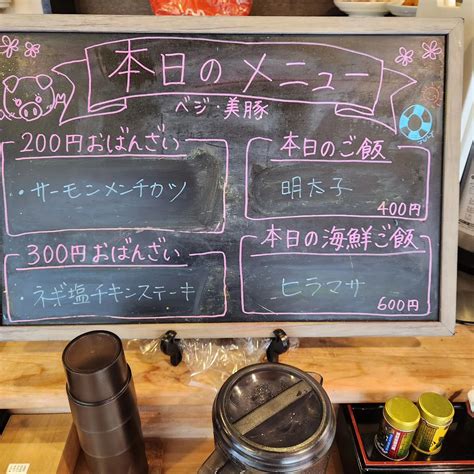 本日のメニュー
ベジ・美豚
200円おばんざい
・サーモンメンチカツ
300円おばんざい
・ネギ塩チキンステーキ
本日のご飯
明太子
400円
本日の海鮮ご飯
ヒラマサ
600円